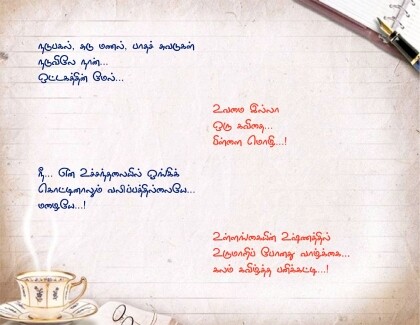 நடுபகல், சுடு மணல், பாதச் சுவடுகள்
நடுவிலே நான்...
ஒட்டகத்தின் மேல்...
உவமை இல்லா
ஒரு கவிதை...
பிள்ளை மொழி...!
நீ... என் உச்சந்தலையில் ஓங்கிக்
கொட்டினாலும் வலிப்பத்தில்லையே...
மழையே...!
உள்ளங்கையின் உஷ்ணத்தில்
உருமாறிப் போனது வாழ்க்கை...
கலம் கவிழ்த்த பனிக்கட்டி...!